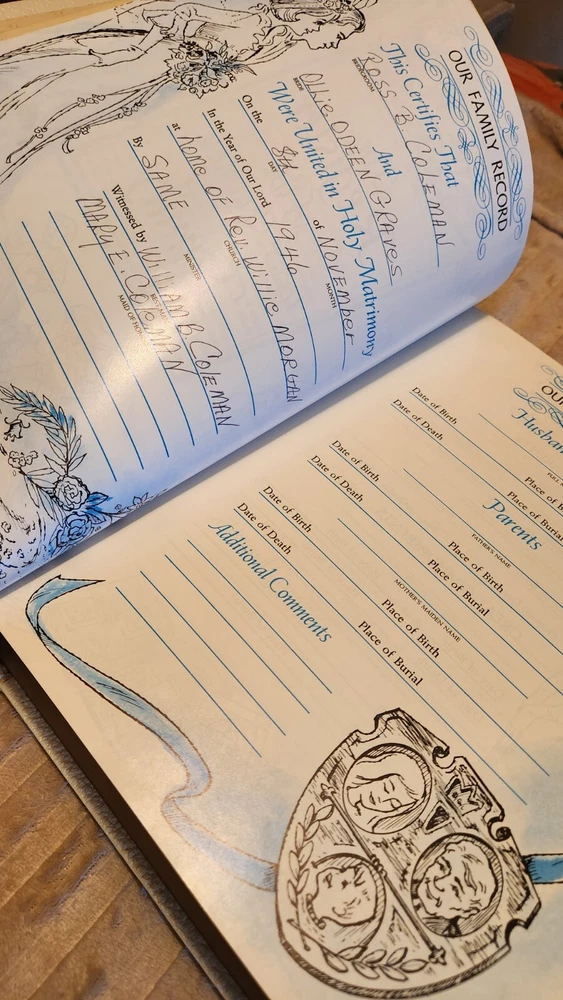 OUR FAMILY RECORD
This Certifies That
ROSS B. COLEMAN
BRIDEGROOM
And
Ollie ODEEN GRAVES
BRIDE
Were United in Holy Matrimony
On the 8th of NOVEMBER
DAY MONTH
In the Year of Our Lord 1946
at home OF Rev. Willie MORGAN
CHURCH
By SAME
MINISTER
Witnessed by WILLIAM B. COLEMAN
MARY E. COLEMAN
MAID OF
OUR
Husban
FULL
Date of Birth Place of B
Date of Death Place of Burial
Parents
FATHER'S NAME
Date of Birth Place of Birth
Date of Death Place of Burial
MOTHER'S MAIDEN NAME
Date of Birth Place of Birth
Date of Death Place of Burial
Additional Comments